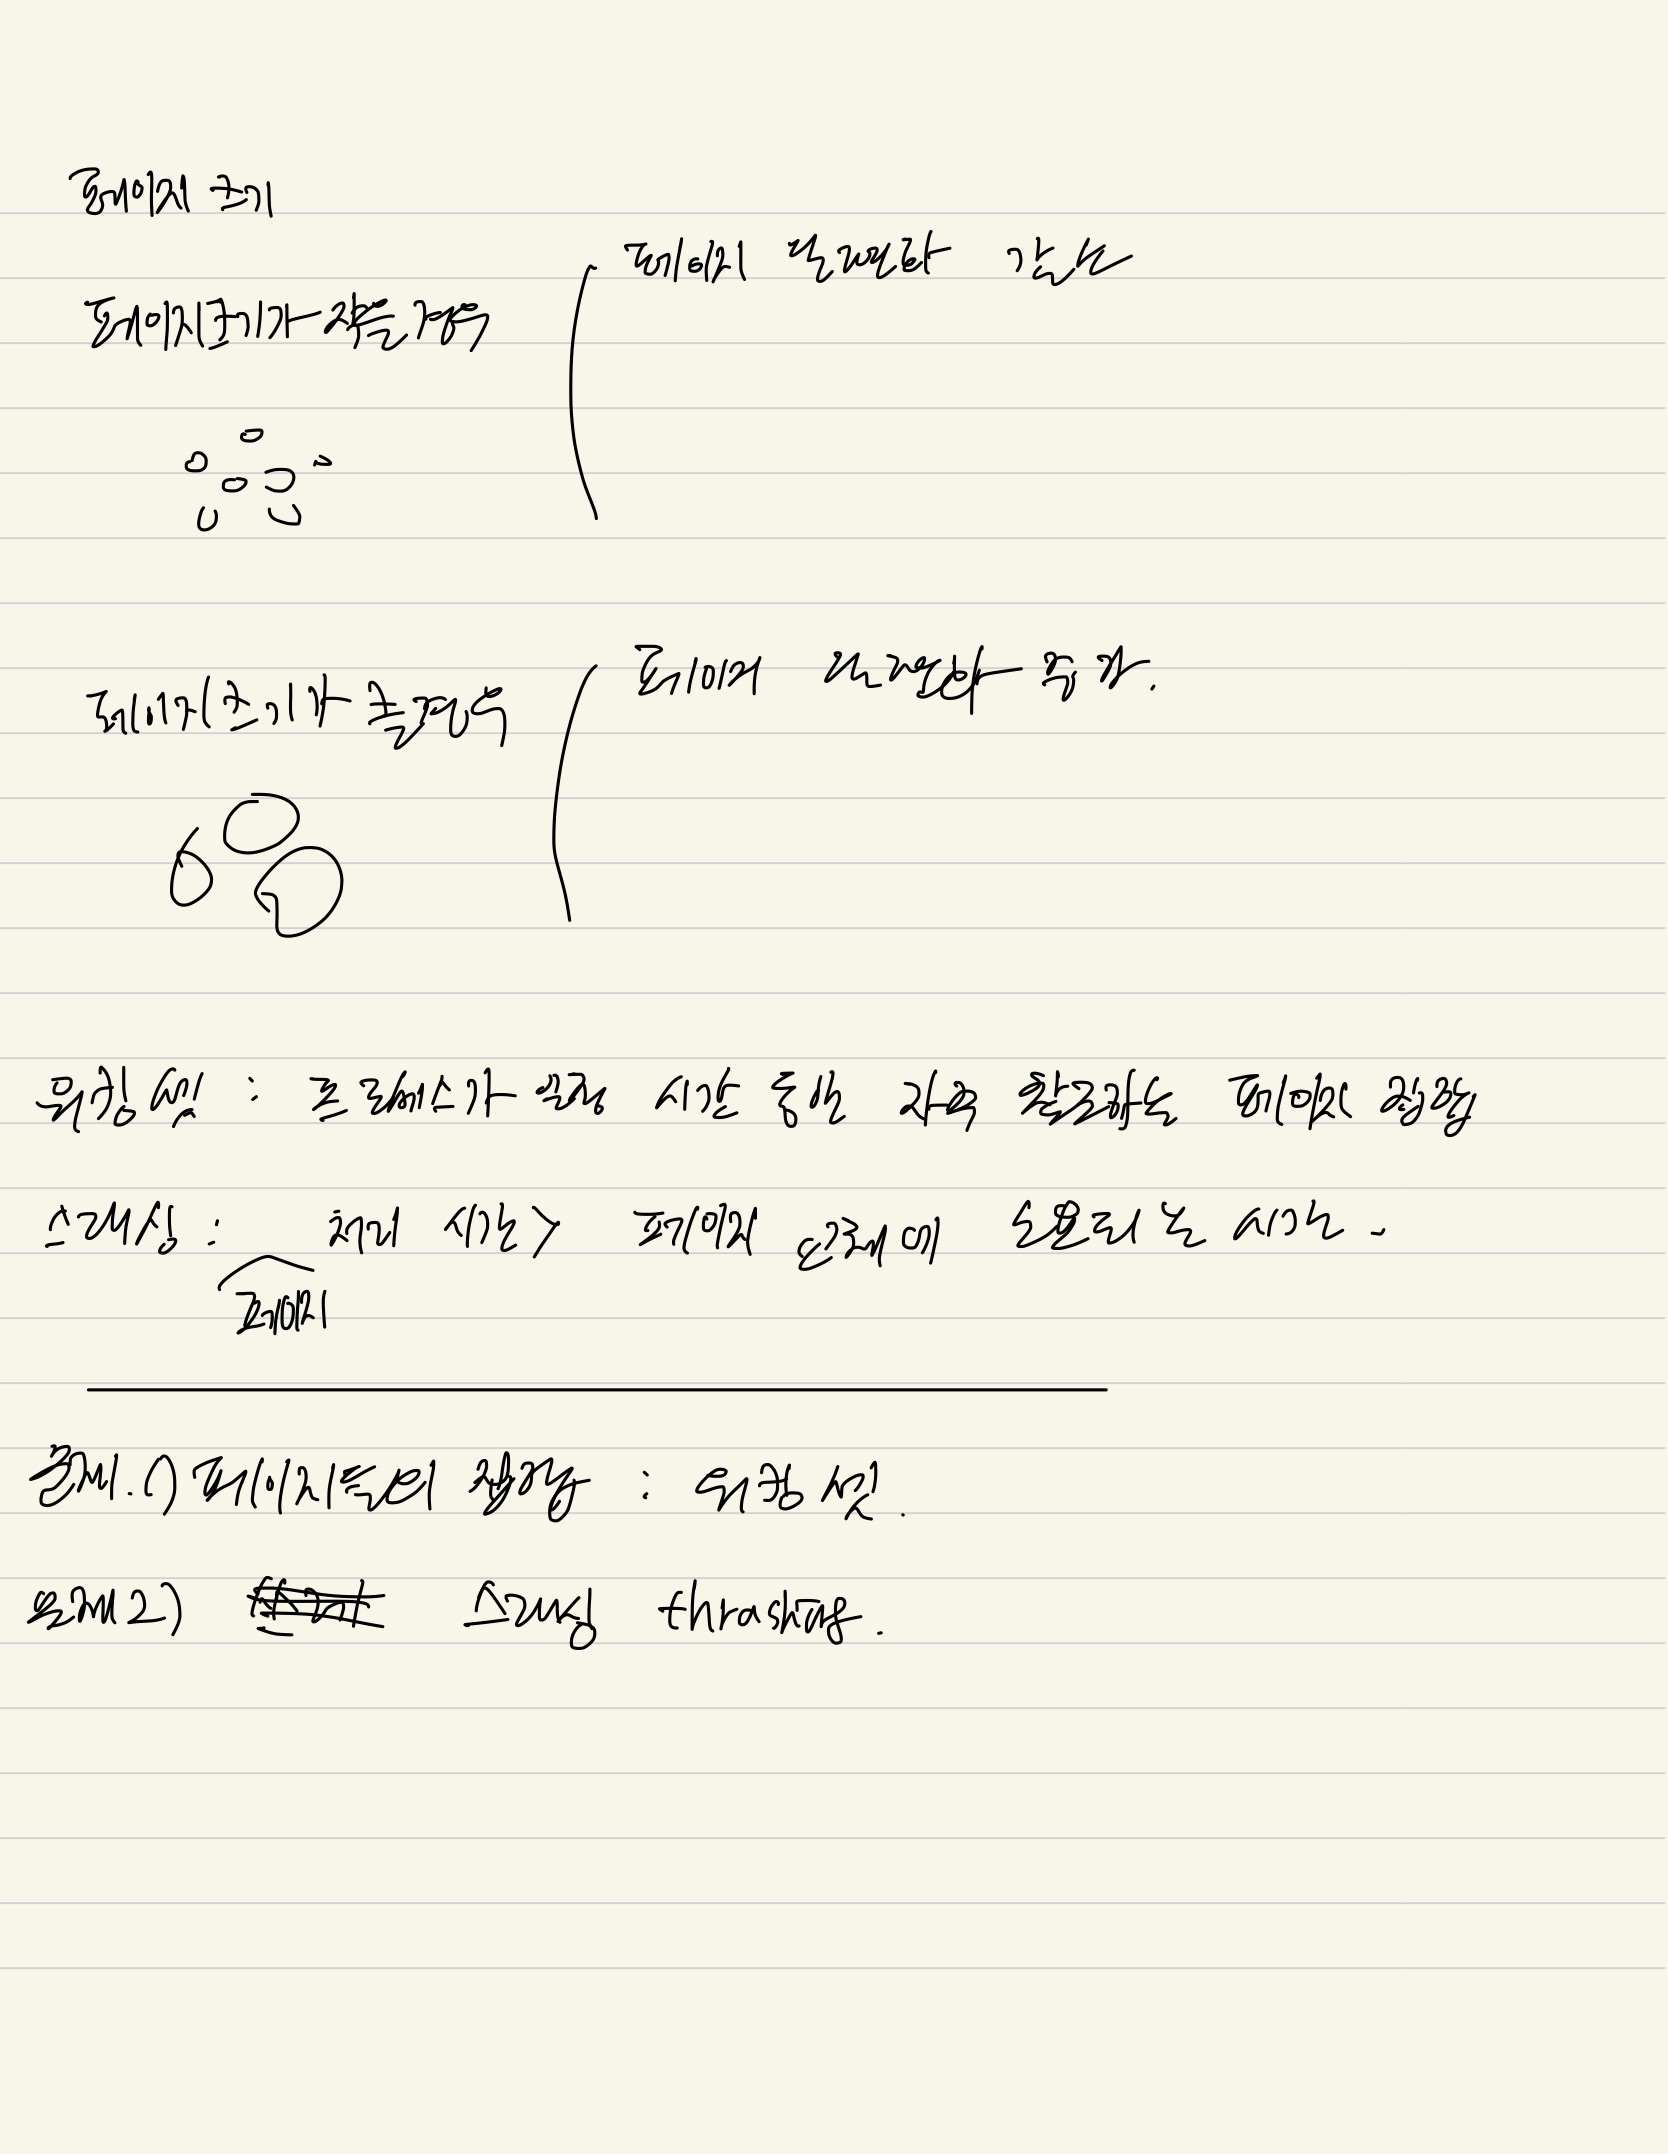 페이지 크기
페이지 단편화 감소
페이지크기가 작을 경우
페이지 단편화 증가.
페이지 크기가 클 경우
워킹 셋 : 프로세스가 일정 시간 동안 자주 참조하는 페이지 집합
스래싱 : 처리 시간 > 페이지 교체에 소요되는 시간.
페이지
문제.1) 페이지들의 집합 : 워킹 셋.
문제2) 스래싱 thrashing.